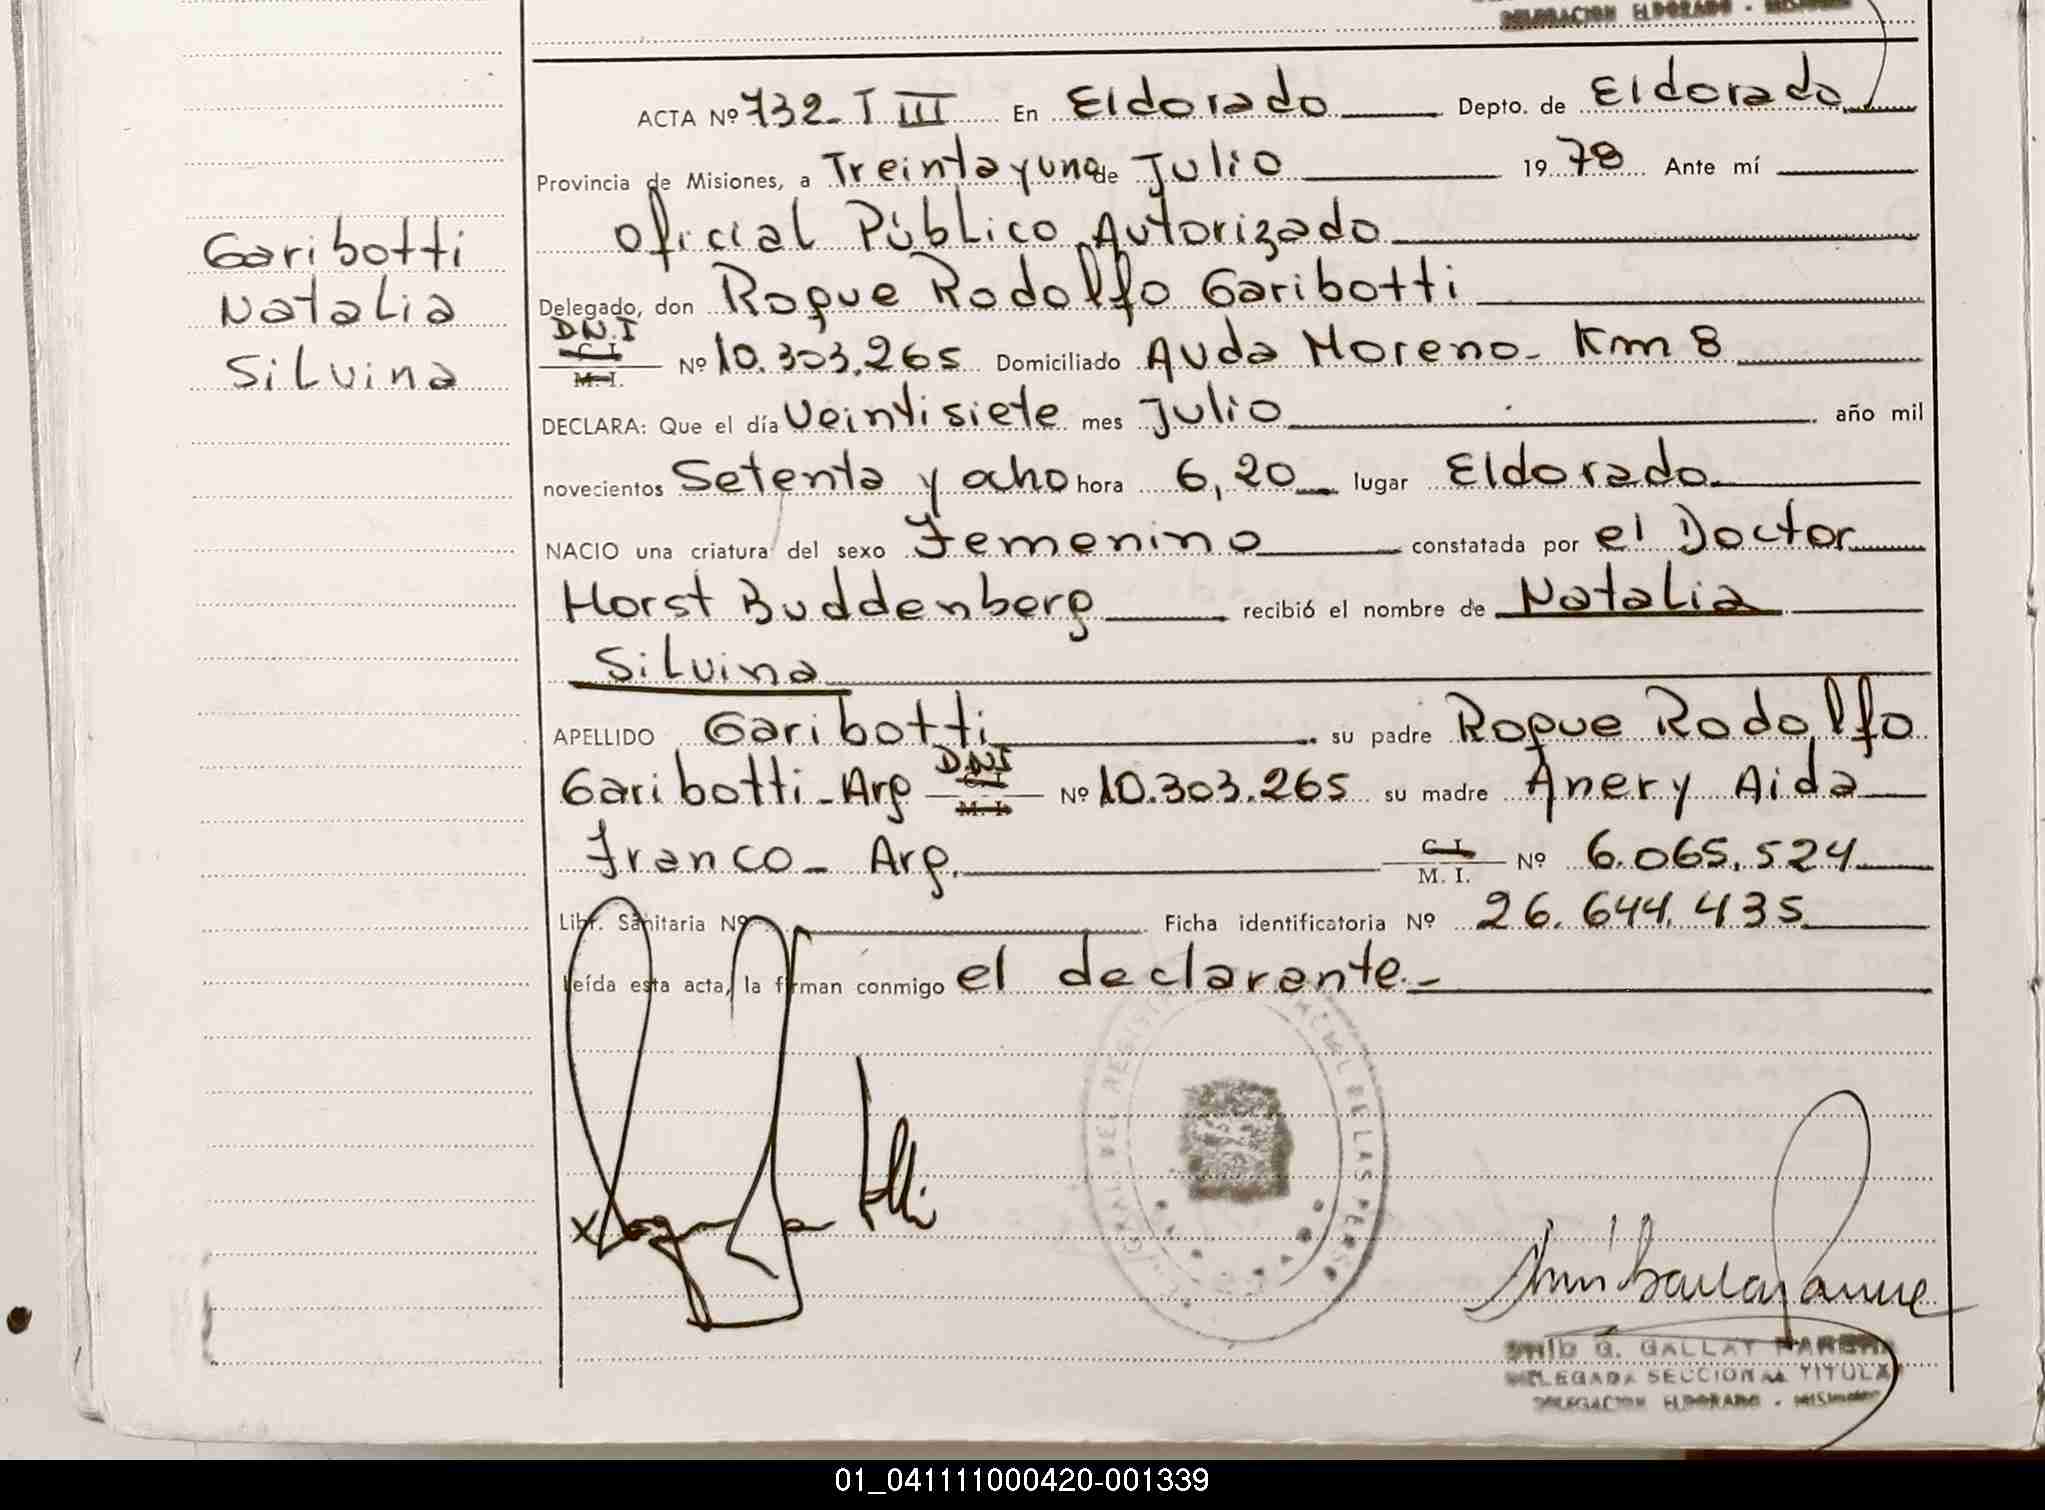 DELEGACION ELDORADO - MISIONES
ACTA Nº 732 - T III En Eldorado Depto. de Eldorado
Provincia de Misiones, a Treinta y uno de Julio 1978 Ante mí
Oficial Público Autorizado
Delegado, don Roque Rodolfo Garibotti
D.N.I
C. I.
M. I. Nº 10.303.265 Domiciliado Avda Moreno - Km 8
DECLARA: Que el día Veintisiete mes Julio año mil
novecientos Setenta y ocho hora 6,20 lugar Eldorado
NACIO una criatura del sexo Femenino constatada por el Doctor
Horst Buddenberg recibió el nombre de Natalia
Silvina
APELLIDO Garibotti su padre Roque Rodolfo
Garibotti - Arg D.N.I C. I. M. I. Nº 10.303.265 su madre Anery Aida
Franco - Arg. C. I. M. I. Nº 6.065.524
Libr. Sanitaria Nº Ficha identificatoria Nº 26.644.435
leída esta acta, la firman conmigo el declarante -
Garibotti
Natalia
Silvina
G. GALLAY
DELEGADA SECCIONAL TITULAR
DELEGACION ELDORADO - MISIONES
01_041111000420-001339